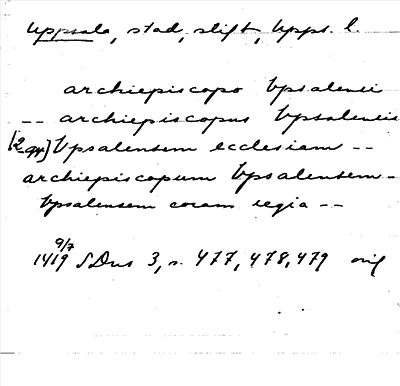 Uppsala, stad, stift, Upps. l.
archiepiscopo Vpsalensi
-- archiepiscopus Vpsalensis
[2 ggr] Vpsalensem ecclesiam --
archiepiscopum Vpsalensem -
Vpsalensem coram regia --
1419 9/7 SDns 3, s. 477, 478, 479 orig